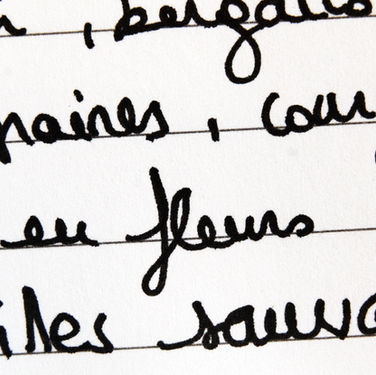 , bergamo
maines, cour
en fleurs
iles sauva